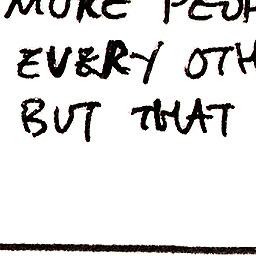 MORE PEOP
EVERY OTH
BUT THAT